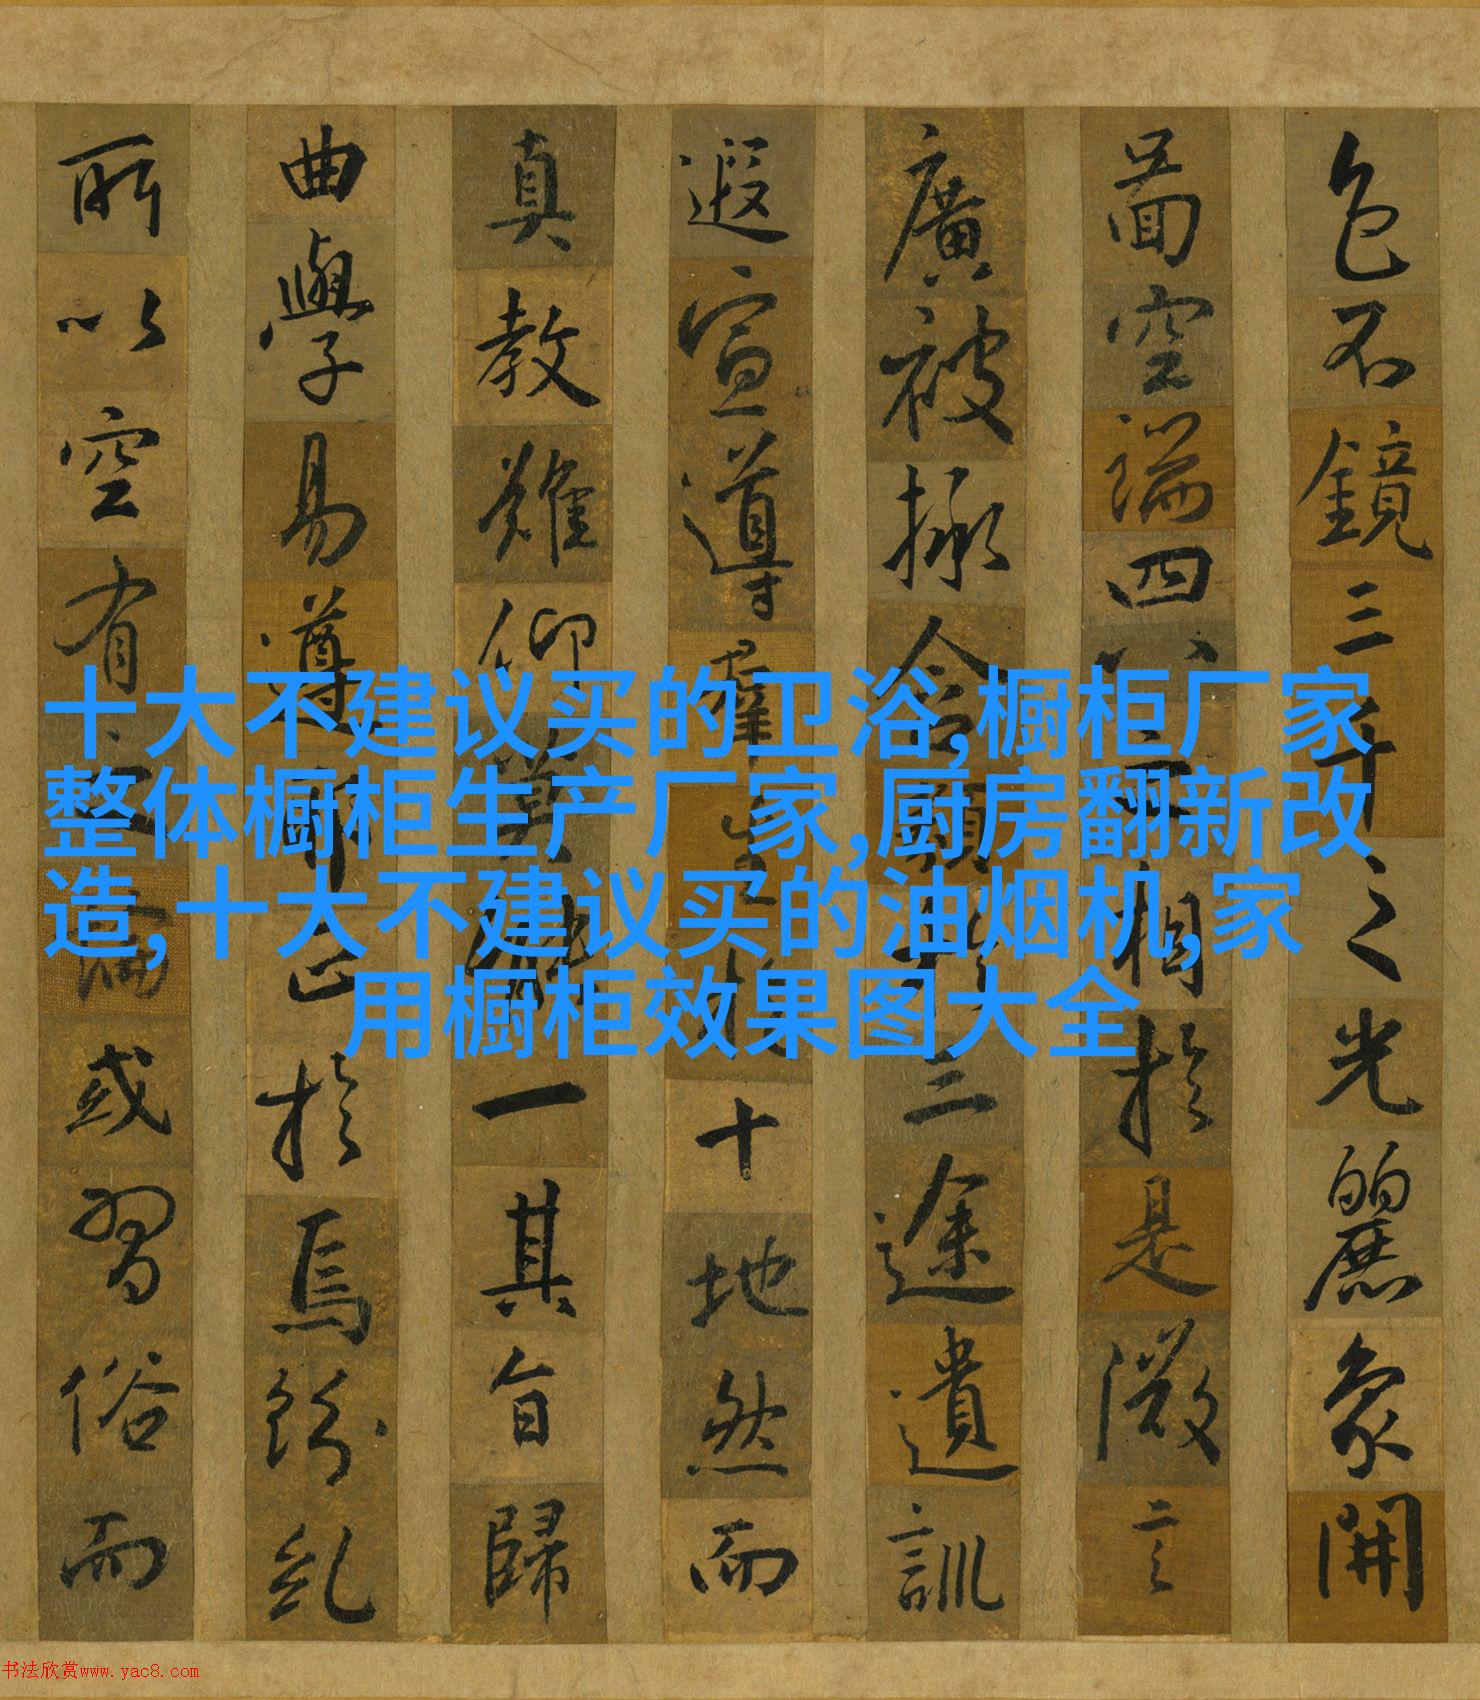 十大不建议买的卫浴,橱柜厂家
整体橱柜生产厂家,厨房翻新改
造,十大不建议买的油烟机,家
用橱柜效果图大全
色不鏡三千之光麗象開
啚空端四八之相於是微言
廣被拯含類於三途遺訓
遐宣導群生於十地然而
真教難仰莫能一其旨歸
曲學易遵耶正於焉紛糺
所以空有之論或習俗而
书法欣赏www.yac8.com